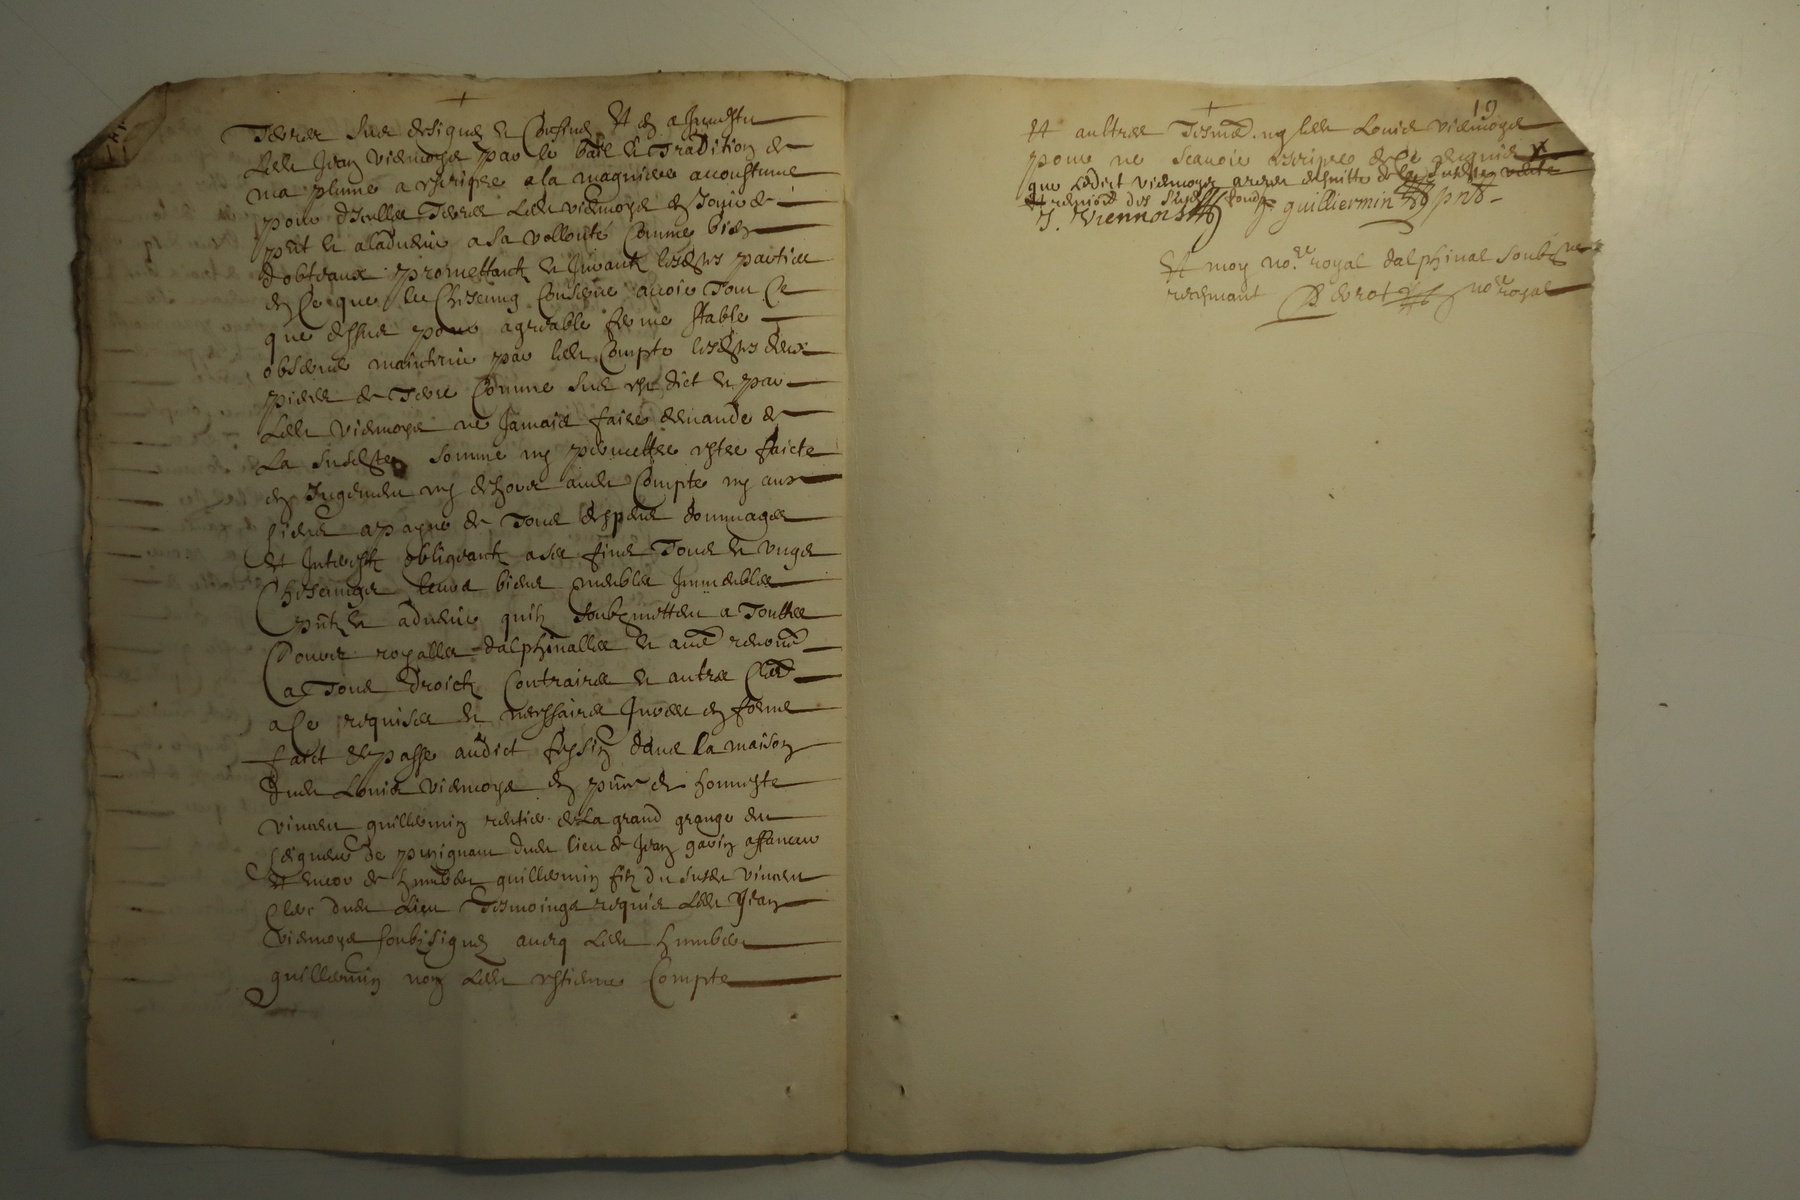 Terres sus designés et Confinés Et en a Investu
Ledt Jean viennoys par le bail et Tradition de
ma plume a escripre a la magniere acoustumé
pour diselles Terres Ledt viennoys en Jouir de
pnt et aladvenir a sa vollonté Comme bien
dobtenant promettantz et Jurantz lesdtes parties
en Ce que les Chiscung Conserne avoir Tout Ce
que dessus pour agreable ferme stable
observé maintenir par ledt Compte lesdtes deux
pieces de Terre Comme sus est dict et par
Ledt viennoys ne Jamais faire demande de
La susdte somme ny permettre estre faicte
en Jugement ny dehors audt Compte ny aux
siens a payne de Tous despens dommages
Et Interestz obligeantz a ses fins Tous et ungs
Chiscungs leurs biens meubles Immeubles
pntz et advenir quilz soubzmettent a Touttes
Cours royalles dalphinalles et avec renonc
a Tous droictz Contraires et autres Claus
a Ce requises et necessaires Jurées en forme
faict et passé audict fessin dans la maison
dudt Louis viennoys en pnce de honneste
vincent guillermin rentier de la grand grange du
seigneur de pusignan dudt lieu de Jean gavin affaneur
Et encor de humbert guillermin filz du susdt vincent
Clerc dudt Lieu Tesmoings requis Ledt Jean
viennoys soubsigné avecq Ledt humbert
guillermin non Ledt estienne Compte
12
Et aultres Tesmoi. ny ledt Louis viennoys
pour ne scavoir escripre de Ce requis
que Ledict viennoys
J. Viennois guilliermin pnt
Et moy nore royal dalphinal soubzne
recepvant nore royal